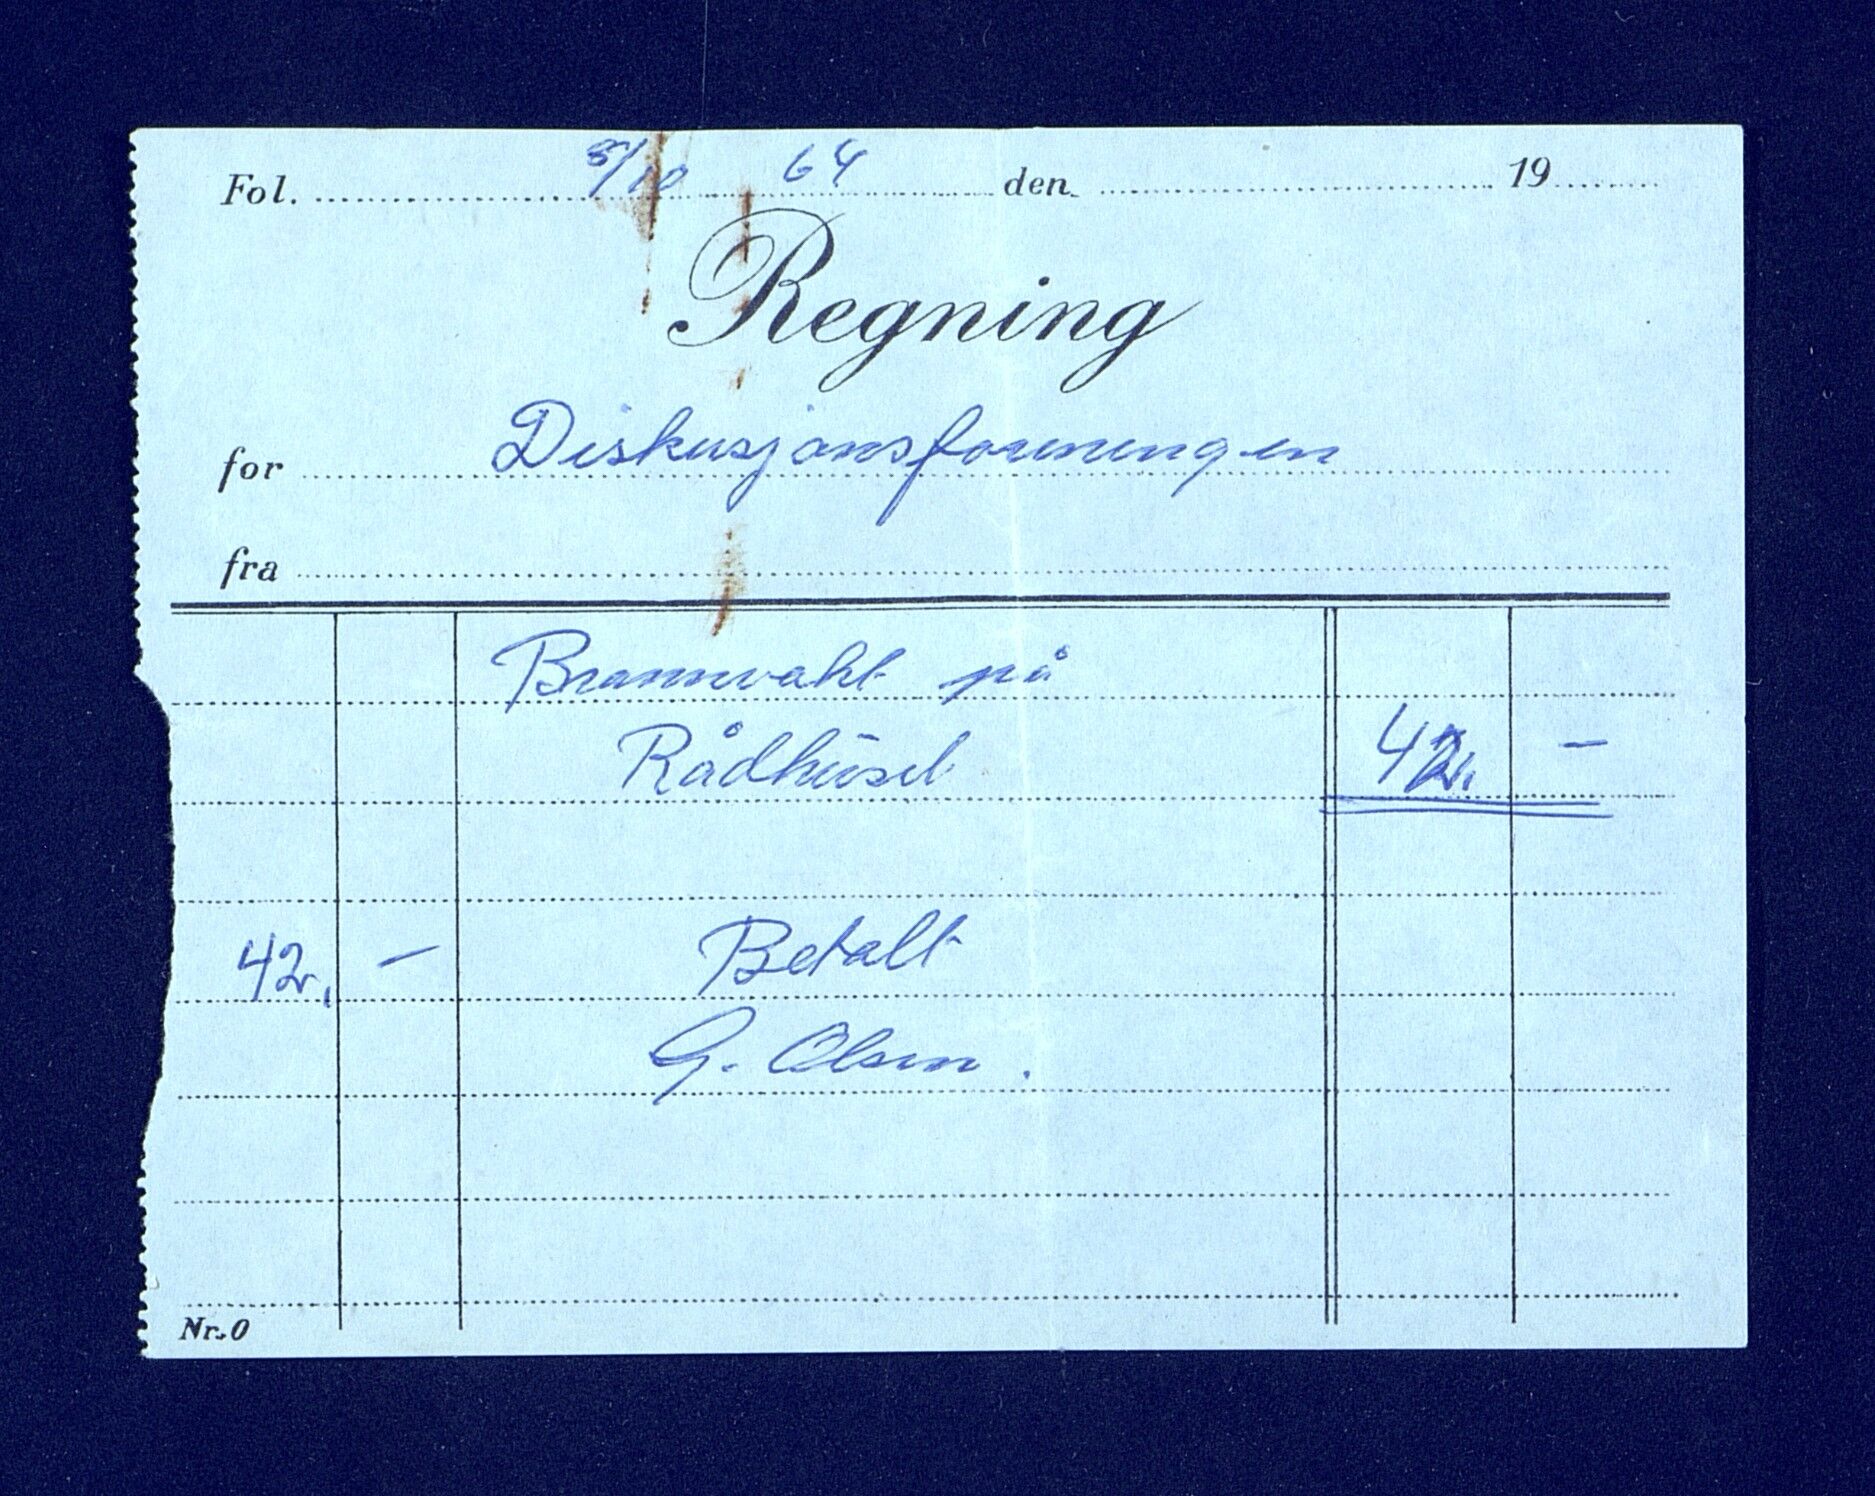 Fol. 8/10 64 den 19
Regning
for Diskusjonsforeningen
fra
Brannvakt på
Rådhuset 42, -
42, - Betalt
G. Olsen.
Nr. 0